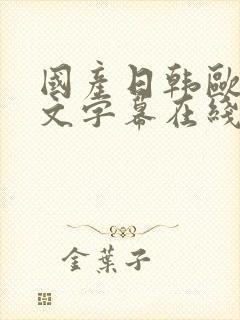 國産日韩歐
文字幕在綫
金葉子